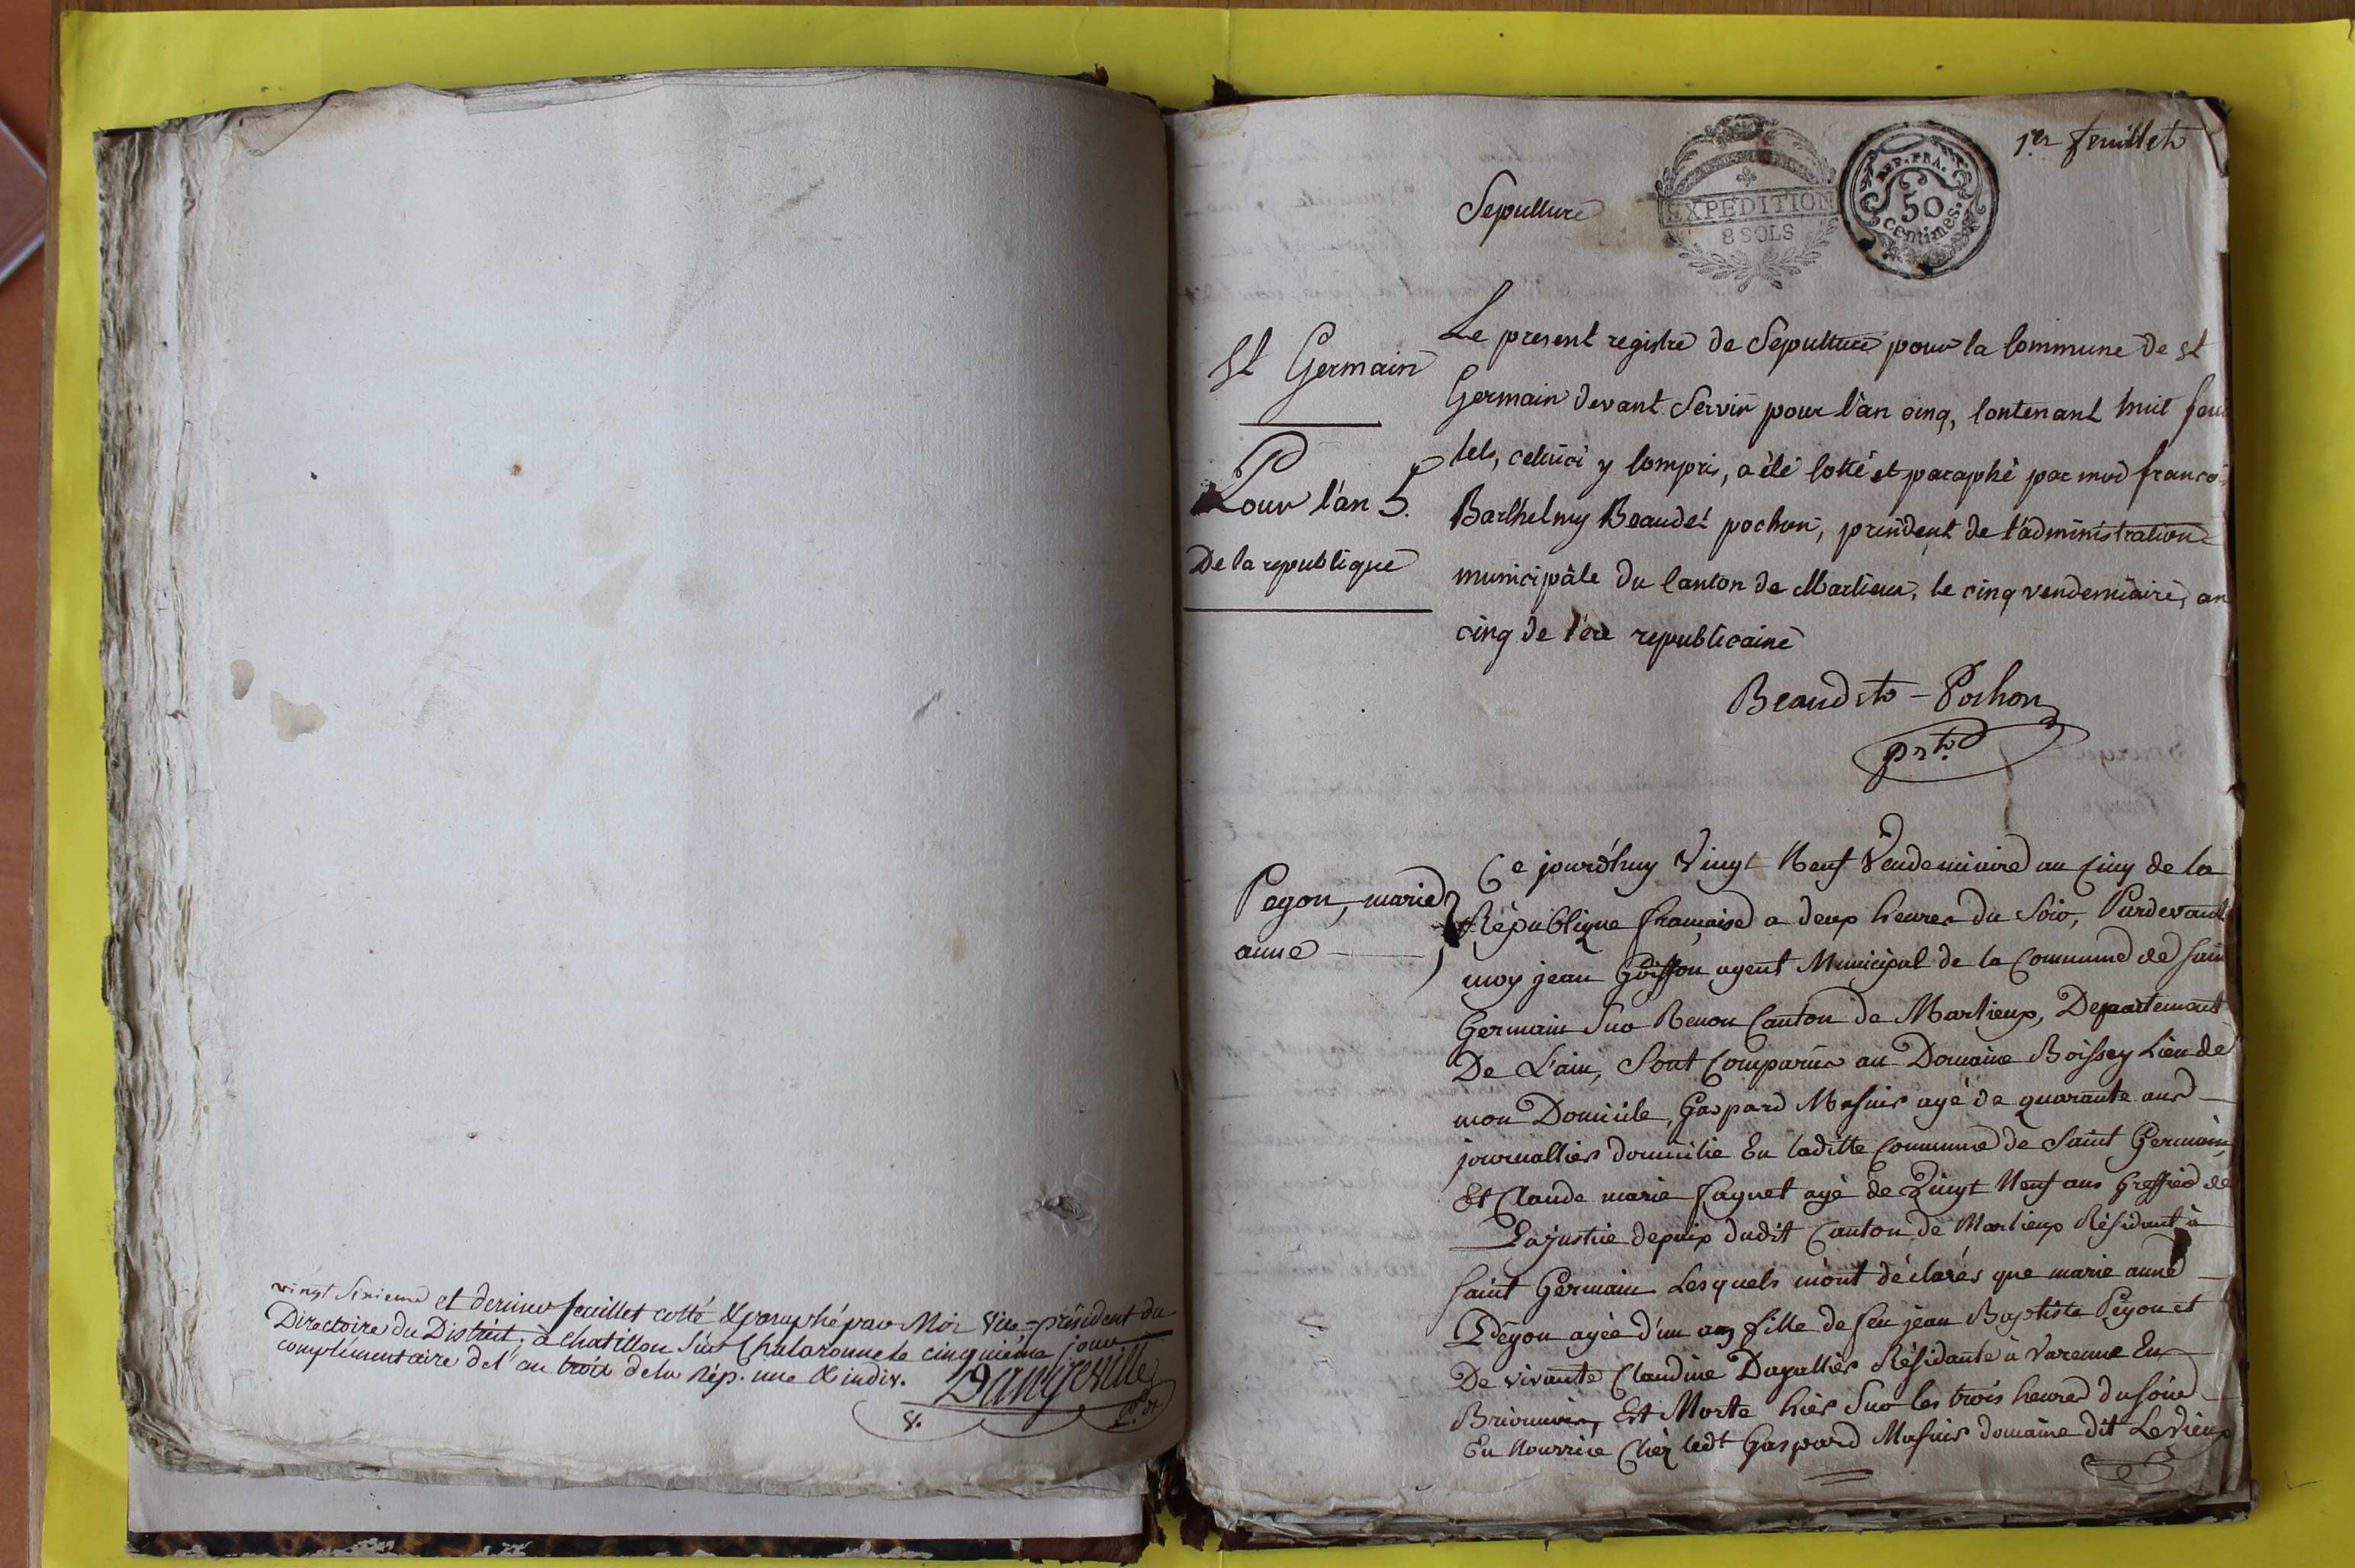 vingt sixieme et dernier feuillet cotté & paraphé par Moi vice-président du
Directoire du District, à chatillon sur Chalaronne le cinquième jour
complémentaire de l'an trois de la Rép. une & indiv.
Dangeville
v. pdt
1er feuillet
EXPEDITION
8 SOLS
REP. FRA.
50
centimes.
Sepulture
St Germain
Pour l'an 5.
De la republique
Le present registre de Sepulture pour la Commune de st
Germain devant Servir pour l'an cinq, Contenant huit feuil
lets, celuici y Compris, a été Cotté et paraphé par moi françois
Barthelmy Beaudet pochon, president de l'administration
municipâle du Canton de Marlieux, le cinq vendemiaire, an
cinq de l'ére republicaine
Beaudet - Pochon
prt.
Pegon, marie
anne
Ce jourd'huy Vingt Neuf Vendemiaire an Cinq de la
République française a deux heures du Soir, Pardevant
moy jean Goiffon agent Municipal de la Commune de Saint
Germain Sur Renon Canton de Marlieux, Departement
De L'ain, Sont Comparus au Domaine Boissey Lieu de
mon Domicile, Gaspard Mesnis agé de quarante ans
journallier domicilie En laditte Commune de Saint Germain,
Et Claude marie Paquet agé de Vingt Neuf ans Greffier de
La justice de paix dudit Canton de Marlieux Résidant à
Saint Germain Lesquels m'ont déclarés que marie anne
Pégon agée d'un an fille de feu jean Baptiste Pégon et
De vivante Claudine Dagallier Résidante à Varenne En
Est Morte hier Sur les trois heures du soir
En Nourrice Chéz ledt Gaspard Mesnis domaine dit Le vieux